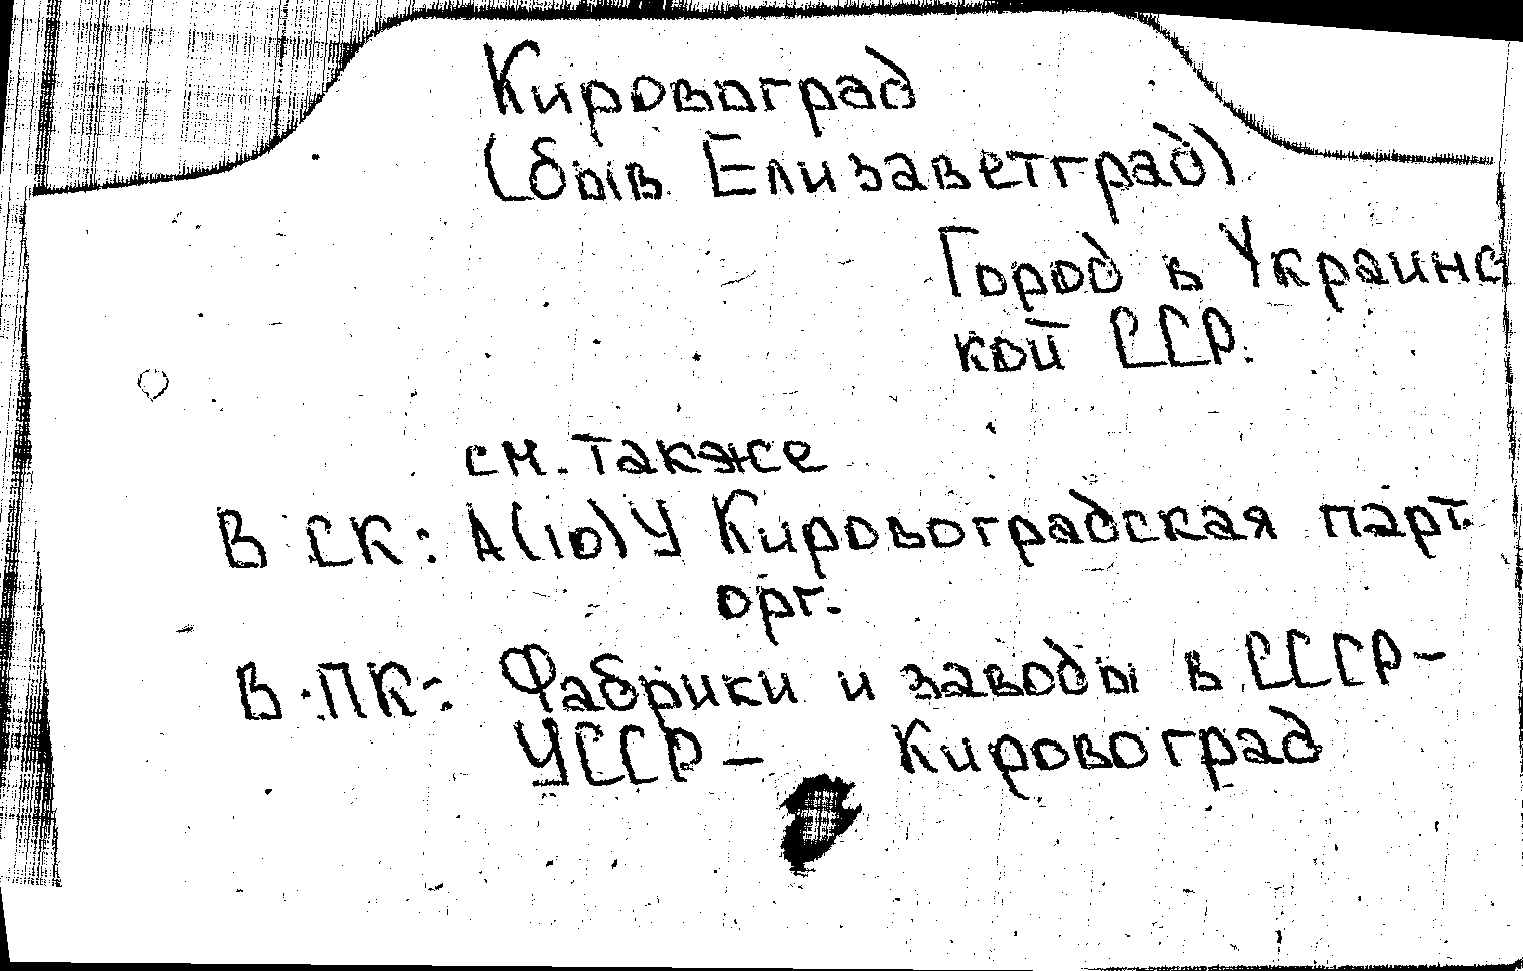 Кировоград
(быв. Елизаветград)
Город в Украинс
кой ССР.
см. также
В СК: А(10)У Кировоградская парт.
орг.
В ПК: Фабрики и заводы в СССР-
УССР- Кировоград